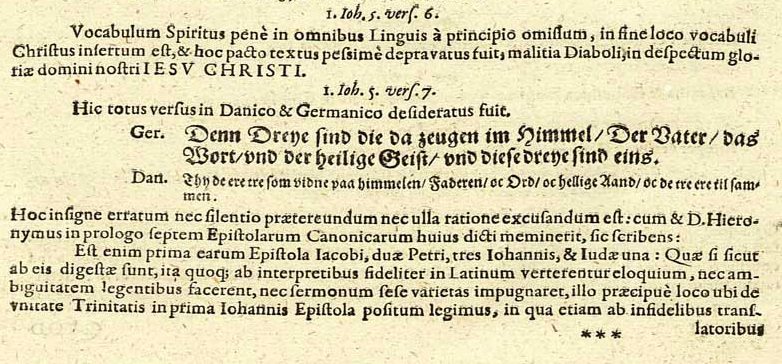 1. Ioh. 5. vers. 6.
Vocabulum Spiritus penè in omnibus Linguis à principio omissum, in fine loco vocabuli
Christus insertum est, & hoc pacto textus pessimè depravatus fuit, malitia Diaboli, in despectum glo-
riæ domini nostri IESV CHRISTI.
1. Ioh. 5. vers. 7.
Hic totus versus in Danico & Germanico desideratus fuit.
Ger. Denn Dreye sind die da zeugen im Himmel/ Der Vater/ das
Wort/ vnd der heilige Geist/ vnd diese dreye sind eins.
Dan. Thy de ere tre som vidne paa himmelen/ Faderen/ oc Ord/ oc hellige Aand/ oc de tre ere til sam-
men.
Hoc insigne erratum nec silentio prætereundum nec ulla ratione excusandum est: cum & D. Hiero-
nymus in prologo septem Epistolarum Canonicarum huius dicti meminerit, sic scribens:
Est enim prima earum Epistola Iacobi, duæ Petri, tres Iohannis, & Iudæ una: Quæ si sicut
ab eis digestæ sunt, ita quoq; ab interpretibus fideliter in Latinum verterentur eloquium, nec am-
biguitatem legentibus facerent, nec sermonum sese varietas impugnaret, illo præcipuè loco ubi de
vnitate Trinitatis in prima Iohannis Epistola positum legimus, in qua etiam ab infidelibus trans-
*** latoribus